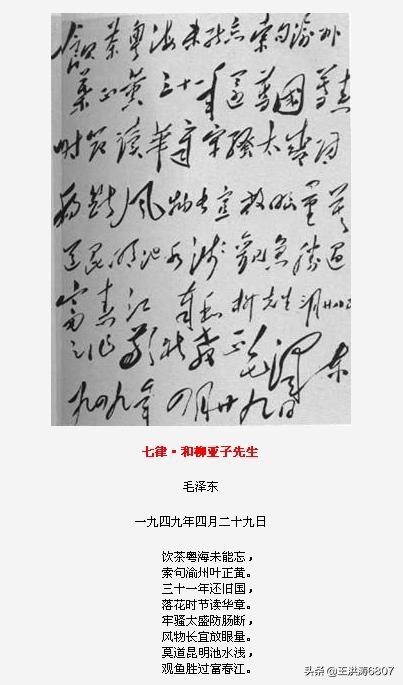 飲茶粤海未能忘索句渝州
葉正黄三十一年還舊國落花
时節读華章牢騷太盛防
腸斷風物長宜放眼量莫
道昆明池水浅觀魚勝過
富春江 奉和柳先生三月廿八日
之作敬祈教正 毛澤东
一九四九年四月廿九日
七律·和柳亚子先生
毛泽东
一九四九年四月二十九日
饮茶粤海未能忘，
索句渝州叶正黄。
三十一年还旧国，
落花时节读华章。
牢骚太盛防肠断，
风物长宜放眼量。
莫道昆明池水浅，
观鱼胜过富春江。
头条 @王洪涛6807